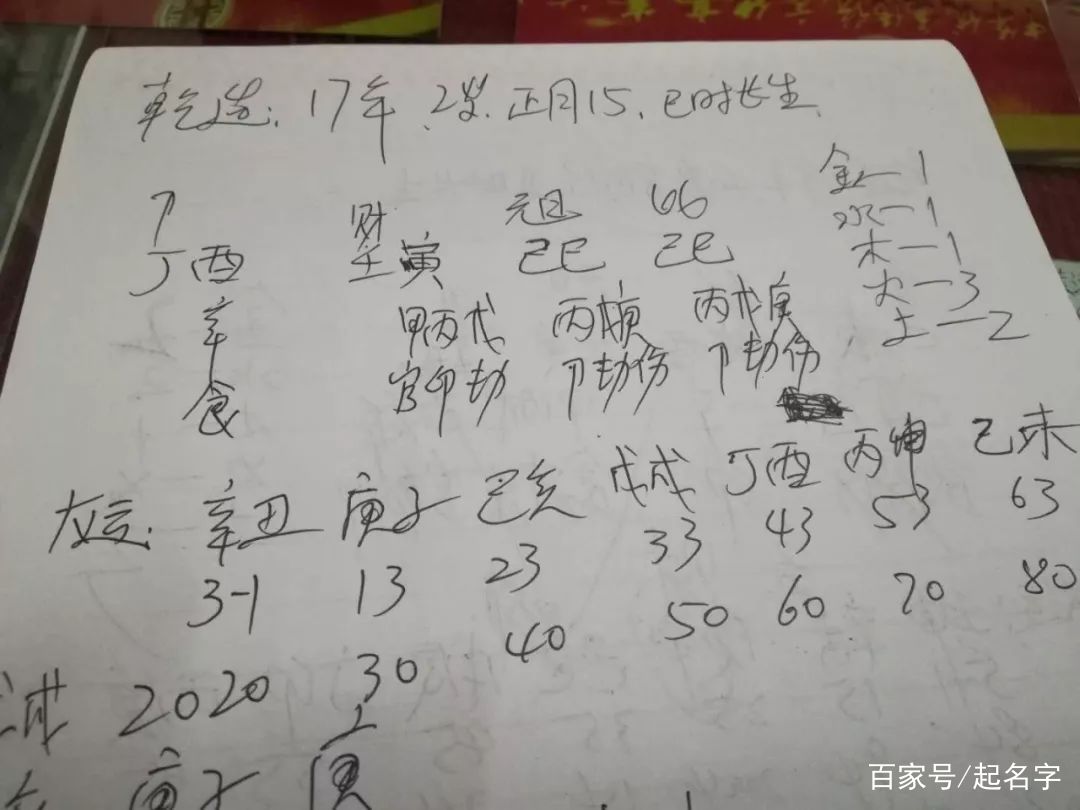 乾造：17年、2岁.正月15、巳时长生.
金一1
卩 财 元旦 比
水一1
丁酉 壬寅 己巳 己巳
木一1
火一3
辛 甲丙戊 丙戊庚 丙戊庚
土一2
食 官印劫 卩劫伤 卩劫伤
大运：辛丑 庚子 己亥 戊戌 丁酉 丙申 己未
3-1 13 23 33 43 53 63
2020 30 40 50 60 70 80
庚子
百家号/起名字